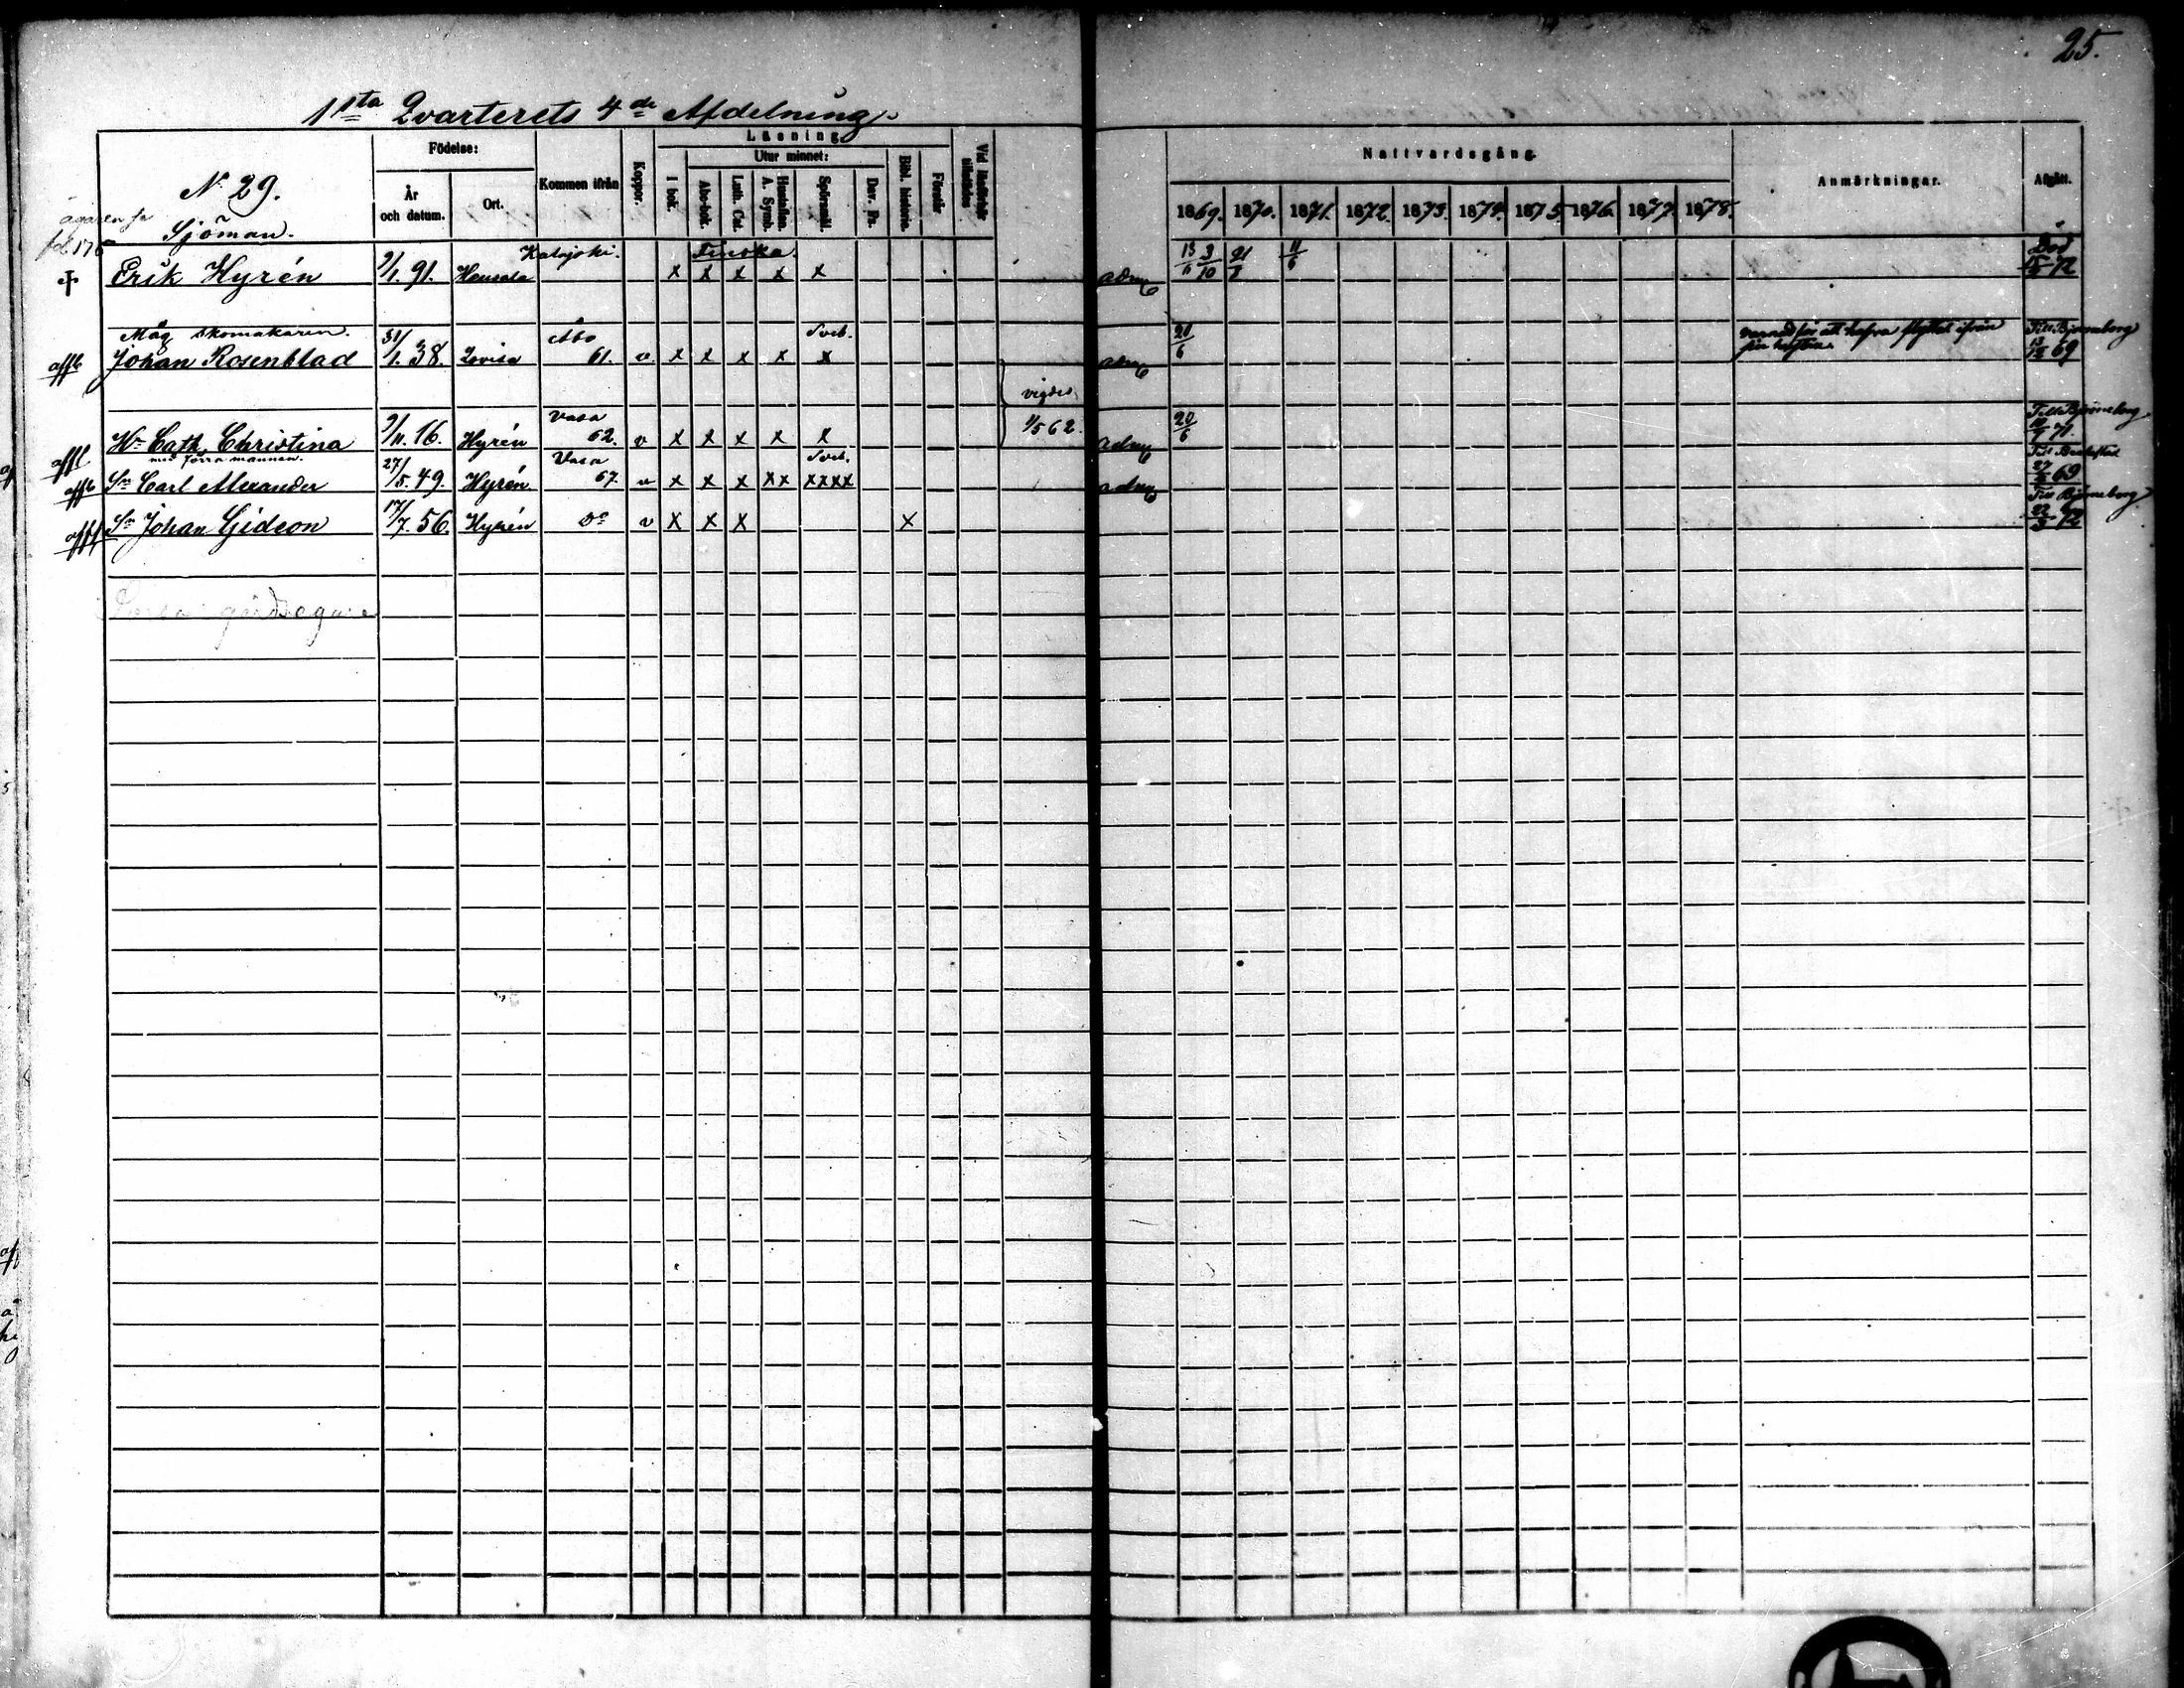 25.
1sta Qvarterets 4de Afdelning.
Födelse: Kommen ifrån Koppor. Läsning Nattvardsgång. Anmärkningar. Afgått.
Utur minnet:
År och datum. Ort. I bok. Abc-bok. Luth. Cat. Hustaflan. A. Symb. Spörsmål. Dav. Ps. Bibl. historia. Förstår Vid läsförhör tillstädes
1869. 1870. 1871. 1872. 1873. 1874. 1875 1876. 1877. 1878.
N 29.
Sjöman. Finska.
Erik Hyrén 9/1. 91. x x x x x 13/6 3/10 21/8 11/6 Död 15/ 72
Måg Skomakaren. Åbo Sveb.
Johan Rosenblad 31/1. 38. Lovisa 61. v x x x x x 20/6 flyttat ifrån Till Björneborg 13/12 69
vigdes
Vasa
Hu Cath. Christina 9/11. 16. Hyrén 62. v x x x x x 1/5 62. 20/6 Till Björneborg 71.
med förra mannen. Vasa Sveb.
Sn Carl Alexander 27/5. 49. Hyrén 67. v x x x xx xxxx 69
Sn Johan Gideon 17/7. 56. Hyrén Do v x x x x Till Björneborg 22/3 72